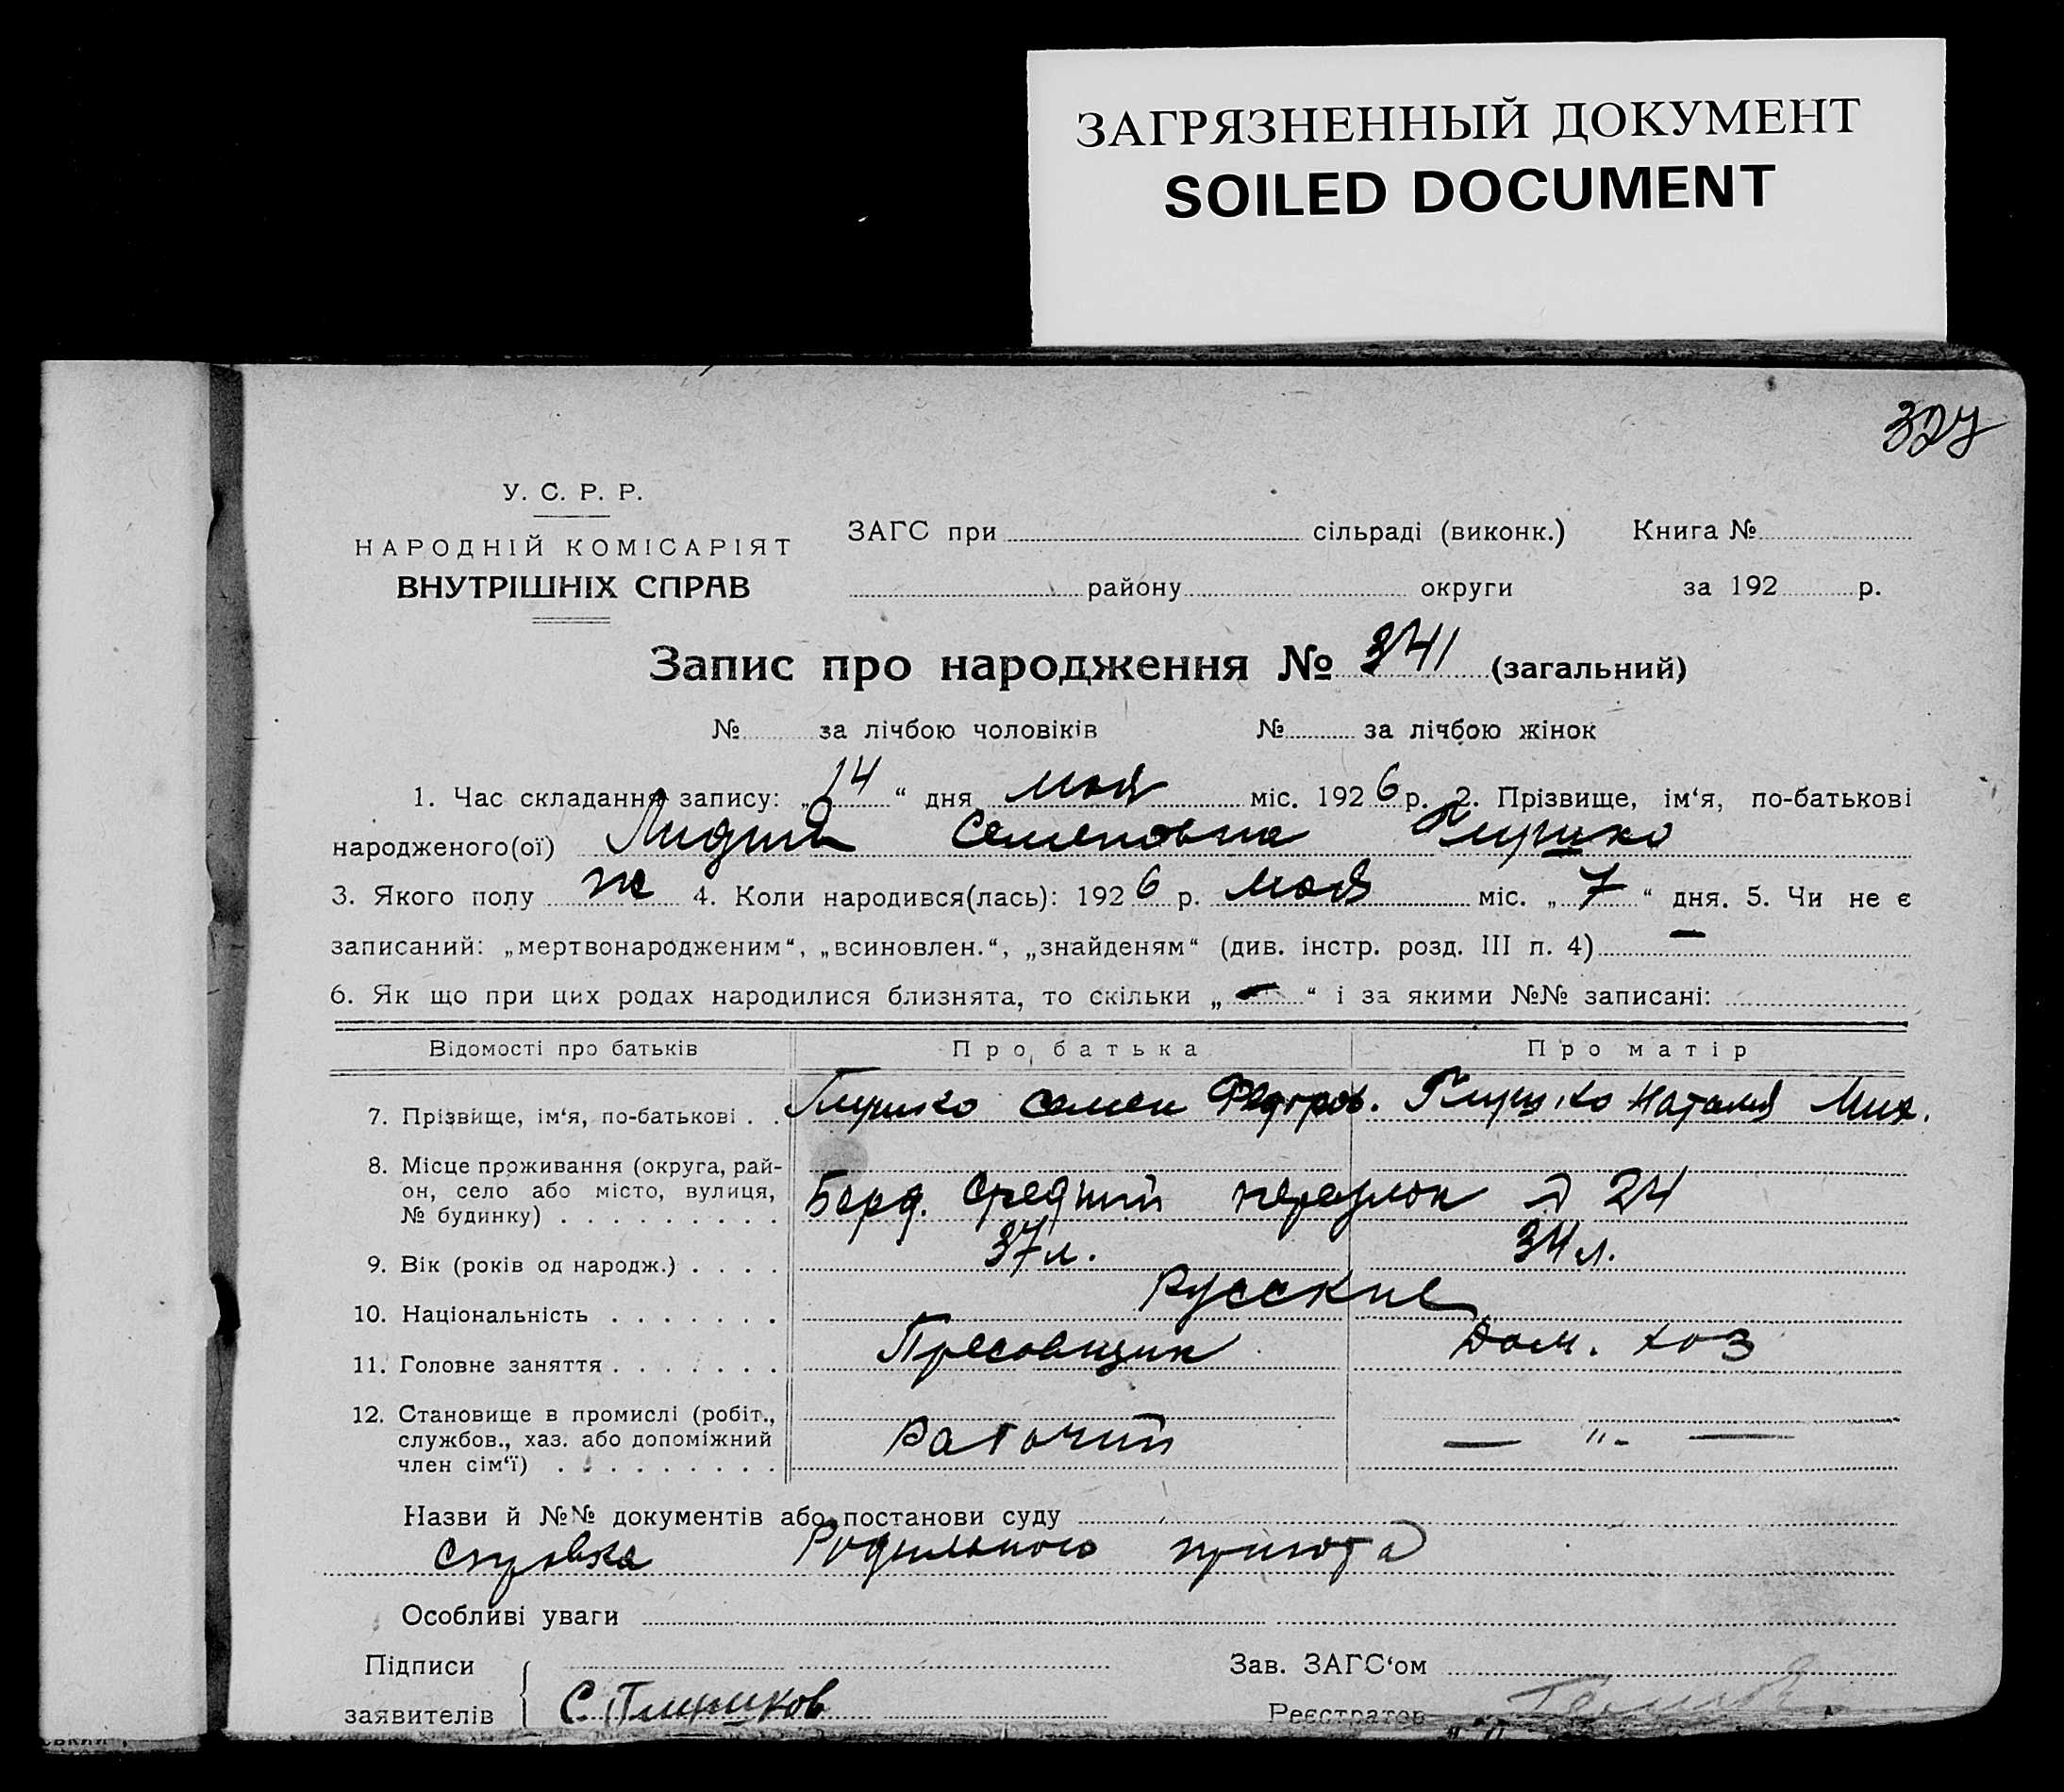 ЗАГРЯЗНЕННЫЙ ДОКУМЕНТ
SOILED DOCUMENT
327
У. С. Р. Р.
НАРОДНІЙ КОМІСАРІЯТ
ВНУТРІШНІХ СПРАВ
ЗАГС при сільраді (виконк.) Книга №
району округи за 192 р.
Запис про народження № 341 (загальний)
№ за лічбою чоловіків № за лічбою жінок
1. Час складання запису: „14“ дня мая міс. 1926 р. 2. Прізвище, ім‘я, по-батькові
народженого(ої) Лидия Семеновна Глушко
3. Якого полу ж 4. Коли народився(лась): 1926 р. мая міс. „7“ дня. 5. Чи не є
записаний: „мертвонародженим“, „всиновлен.“, „знайденям“ (див. інстр. розд. III п. 4) —
6. Як що при цих родах народилися близнята, то скільки „—“ і за якими №№ записані:
Відомості про батьків Про батька Про матір
7. Прізвище, ім‘я, по-батькові . . Глушко Семен Федоров. Глушко Наталия Мих.
8. Місце проживання (округа, рай-
он, село або місто, вулиця,
№ будинку) . . . . . . . . . Берд. Средний переулок д 24
9. Вік (років од народж.) . . . . 37 л. 34 л.
10. Національність . . . . . . . Русские
11. Головне заняття . . . . . . . Пресовщик Дом. хоз
12. Становище в промислі (робіт.,
службов., хаз. або допоміжний
член сім‘ї) . . . . . . . . . Рабочий — "- —
Назви й №№ документів або постанови суду
справка Родильного приюта
Особливі уваги
Підписи
заявителів С. Глушков
Зав. ЗАГС‘ом
Реєстратор